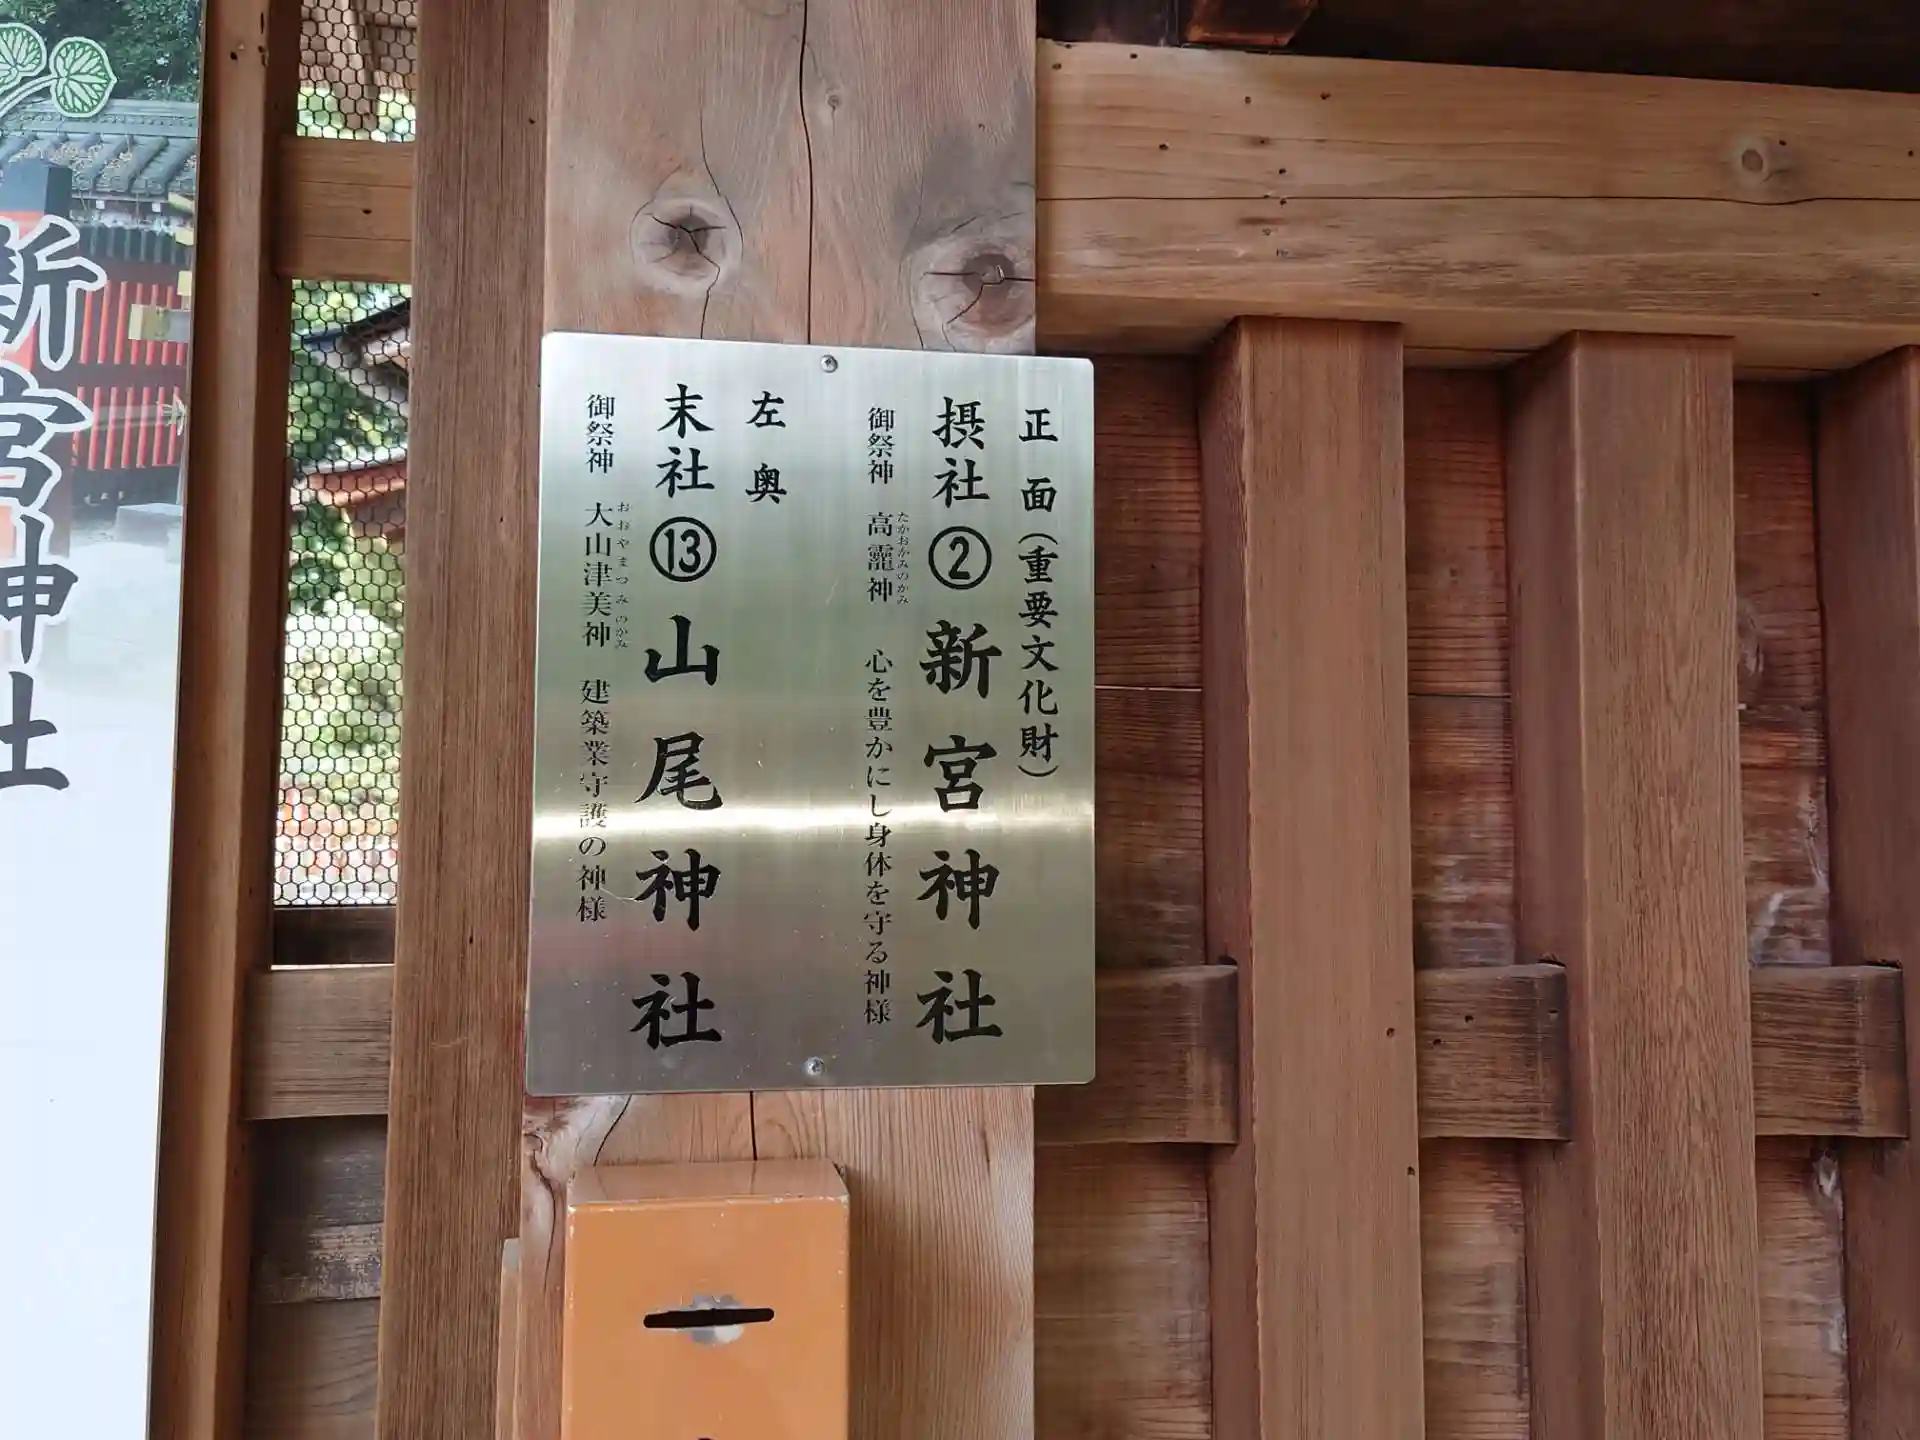 正面(重要文化財)
摂社②新宮神社
たかおかみのかみ
御祭神 高龗神 心を豊かにし身体を守る神様
左奥
末社⑬山尾神社
おおやまつみのかみ
御祭神 大山津美神 建築業守護の神様
新宮神社